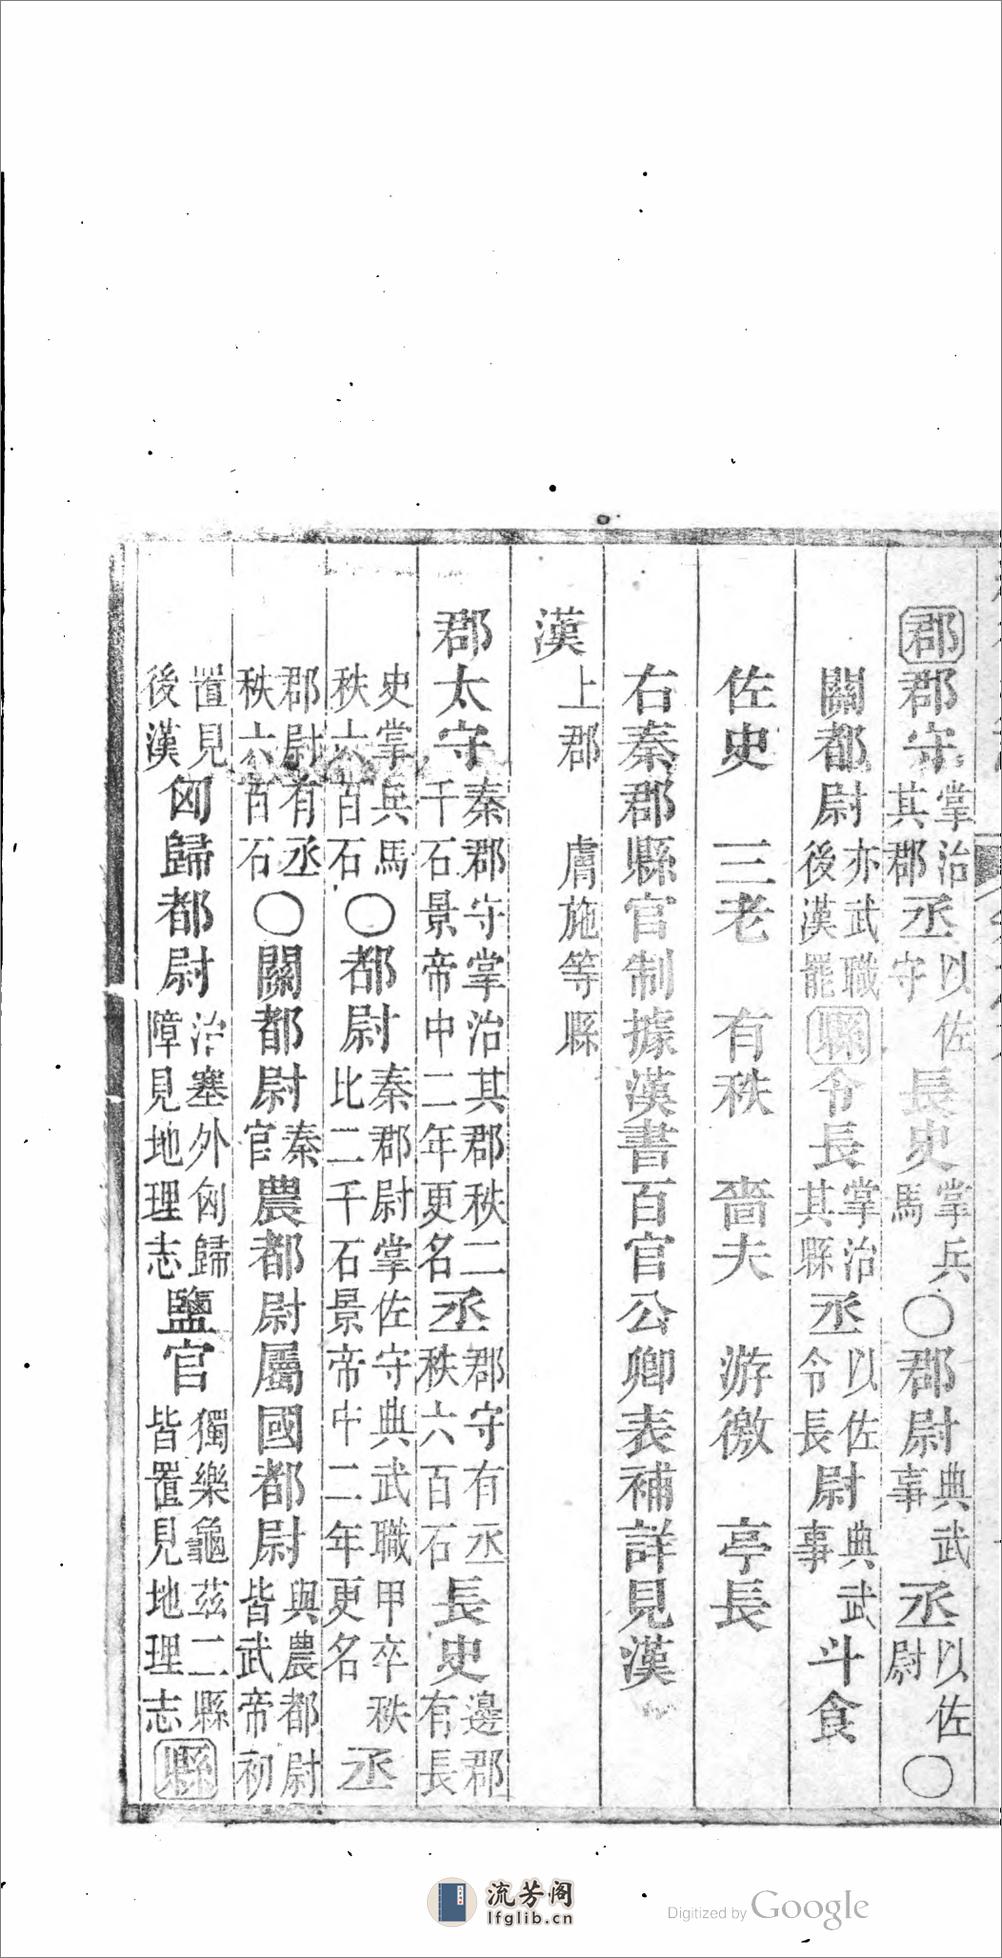 郡郡守掌治其郡丞以佐守長史掌兵馬〇郡尉典武事丞以佐尉〇
關都尉亦武職後漢罷縣令長掌治其縣丞以佐令長尉典武事斗食
佐史　三老　有秩　嗇夫　游徼　亭長
右秦郡縣官制據漢書百官公卿表補詳見漢
漢上郡　膚施等縣
郡太守秦郡守掌治其郡秩二千石景帝中二年更名丞郡守有丞秩六百石長史邊郡有長
史掌兵馬秩六百石〇都尉秦郡尉掌佐守典武職甲卒秩比二千石景帝中二年更名丞
郡尉有丞秩六百石〇關都尉秦官農都尉屬國都尉與農都尉皆武帝初
置見後漢匈歸都尉治塞外匈歸障見地理志鹽官獨樂龜茲二縣皆置見地理志縣
流芳阁
lfglib.cn
Digitized by Google